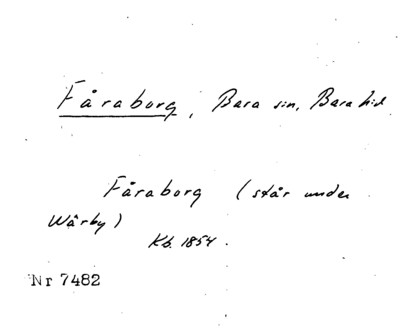 Fåraborg, Bara sn, Bara hd
Fåraborg (står under
Wårby)
Kb. 1854.
Nr 7482